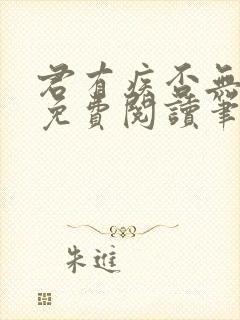 君有疾否無
免費閱讀筆
朱進